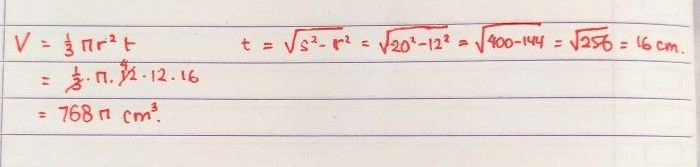 V = 1/3 π r² t    t = √(s² - r²) = √(20² - 12²) = √(400 - 144) = √256 = 16 cm.
= 1/3 · π · 4 12 · 12 · 16
= 768 π cm³.